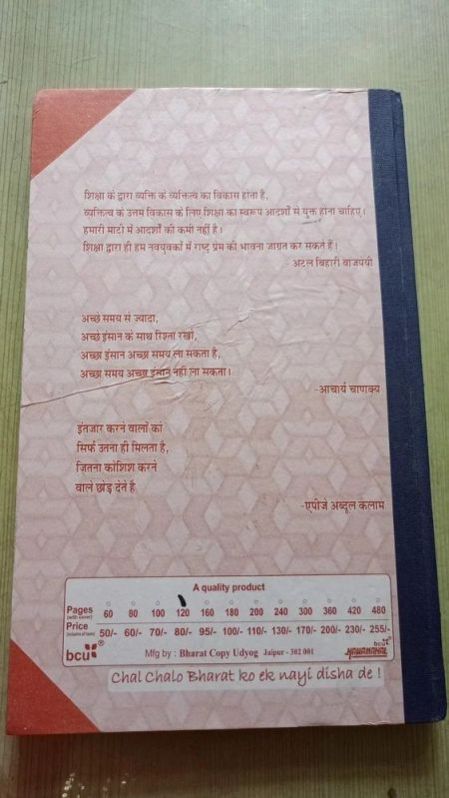 शिक्षा के द्वारा व्यक्ति के व्यक्तित्व का विकास होता है,
व्यक्तित्व के उत्तम विकास के लिए शिक्षा का स्वरूप आदर्शों से युक्त होना चाहिए।
हमारी माटी में आदर्शों की कमी नहीं है।
शिक्षा द्वारा ही हम नवयुवकों में राष्ट्र प्रेम की भावना जाग्रत कर सकते हैं।
- अटल बिहारी वाजपेयी
अच्छे समय से ज्यादा,
अच्छे इंसान के साथ रिश्ता रखो,
अच्छा इंसान अच्छा समय ला सकता है,
अच्छा समय अच्छा इंसान नहीं ला सकता।
-आचार्य चाणक्य
इंतजार करने वालों को
सिर्फ उतना ही मिलता है,
जितना कोशिश करने
वाले छोड़ देते है
-एपीजे अब्दुल कलाम
A quality product
Pages 60 80 100 120 160 180 200 240 300 360 420 480
(with cover)
Price 50/- 60/- 70/- 80/- 95/- 100/- 110/- 130/- 170/- 200/- 230/- 255/-
(inclusive of taxes)
bcu® Mfg by : Bharat Copy Udyog Jaipur - 302 001 bcu HAWAMAHAL
Chal Chalo Bharat ko ek nayi disha de !